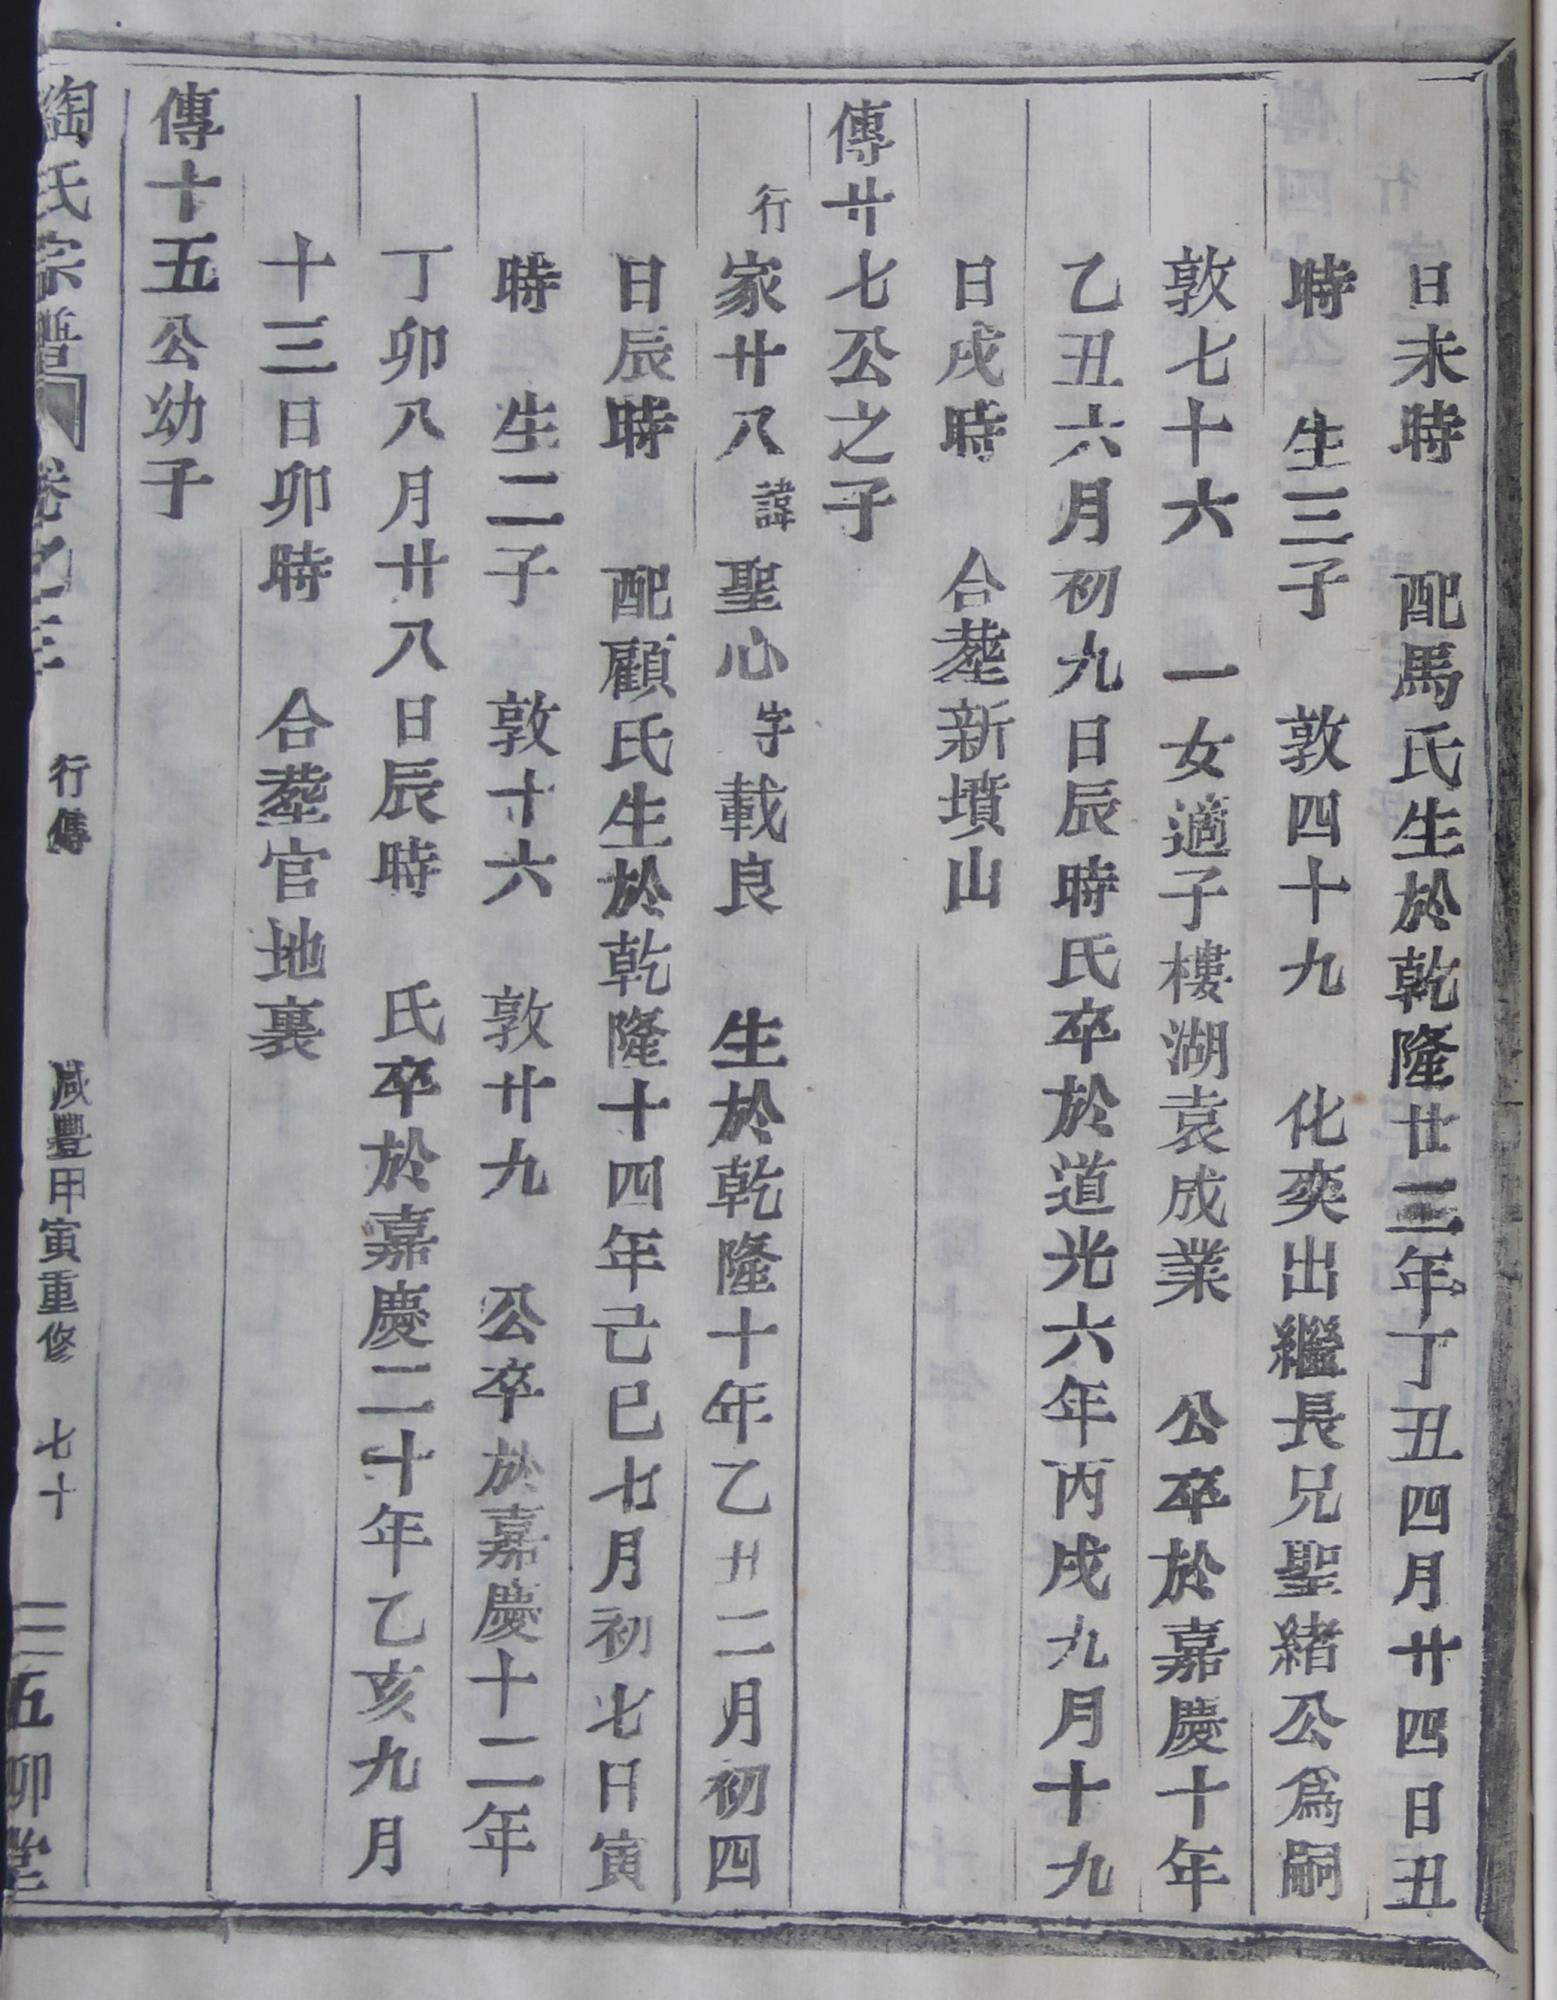 日未時 配馬氏生於乾隆廿二年丁丑四月廿四日丑
時 生三子 敦四十九 化奕出繼長兄聖緒公為嗣
敦七十六 一女適子樓湖袁成業 公卒於嘉慶十年
乙丑六月初九日辰時氏卒於道光六年丙戌九月十九
日戌時 合塟新墳山
傳廿七公之子
行家廿八諱聖心字載良 生於乾隆十年乙丑二月初四
日辰時 配顧氏生於乾隆十四年己巳七月初七日寅
時 生二子 敦十六 敦廿九 公卒於嘉慶十二年
丁卯八月廿八日辰時 氏卒於嘉慶二十年乙亥九月
十三日卯時 合塟官地裏
傳十五公幼子
陶氏宗譜 卷之三 行傳 咸豐甲寅重修 七十 五柳堂